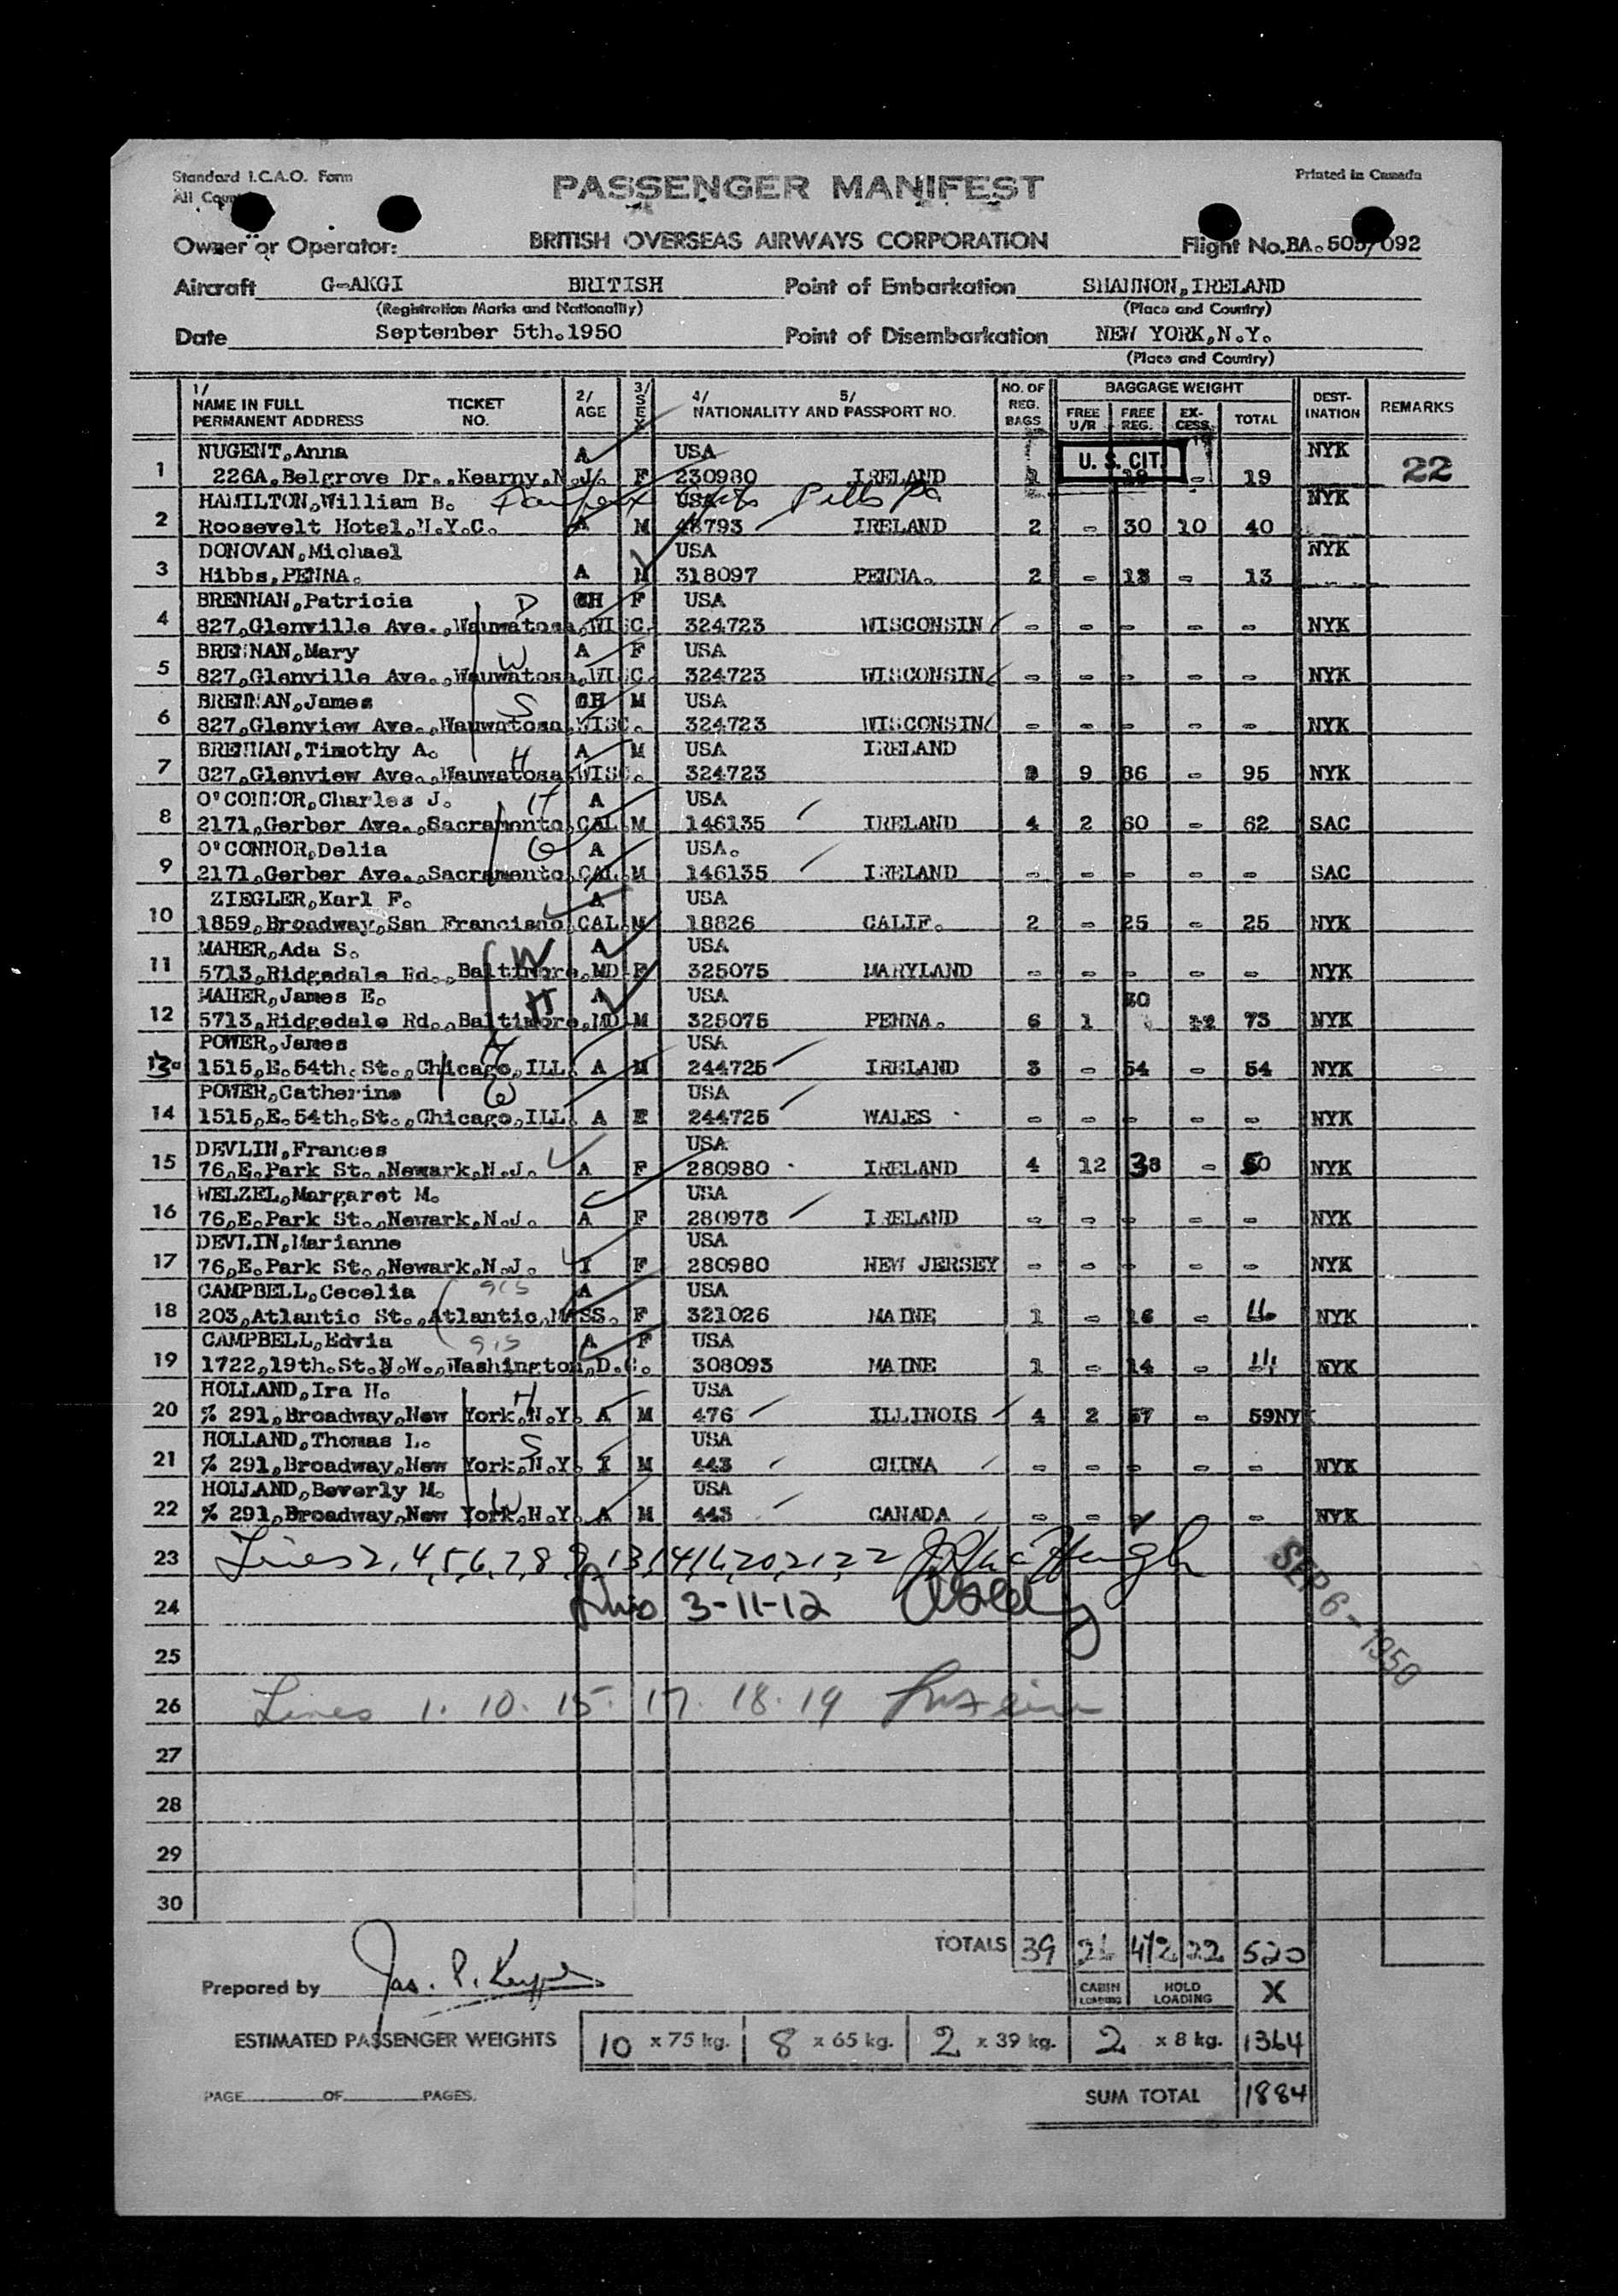 Standard I.C.A.O. Form
All
PASSENGER MANIFEST
Printed in Canada
Owner or Operator: BRITISH OVERSEAS AIRWAYS CORPORATION Flight No. BA.505/092
Aircraft G-AKGI BRITISH Point of Embarkation SHANNON,IRELAND
(Registration Marks and Nationality) (Place and Country)
Date September 5th.1950 Point of Disembarkation NEW YORK,N.Y.
(Place and Country)
1/ NAME IN FULL PERMANENT ADDRESS TICKET NO. 2/ AGE 3/ SEX 4/ 5/ NATIONALITY AND PASSPORT NO. NO. OF REG. BAGS BAGGAGE WEIGHT FREE U/R FREE REG. EX-CESS TOTAL DEST-INATION REMARKS
NUGENT,Anna A USA NYK
1 226A,Belgrove Dr.,Kearny,N.J. F 230980 IRELAND 1 U. S. CIT. - 19 22
HAMILTON,William B. USA Pitts Pa NYK
2 Roosevelt Hotel,N.Y.C. A M 48793 IRELAND 2 - 30 10 40
DONOVAN,Michael USA NYK
3 Hibbs,PENNA. A M 318097 PENNA. 2 - 13 - 13
BRENNAN,Patricia D CH F USA
4 827,Glenville Ave.,Wauwatosa,WISC. 324723 WISCONSIN - - - - - NYK
BRENNAN,Mary W A F USA
5 827,Glenville Ave.,Wauwatosa,WISC. 324723 WISCONSIN - - - - - NYK
BRENNAN,James S CH M USA
6 827,Glenview Ave.,Wauwatosa,WISC. 324723 WISCONSIN - - - - - NYK
BRENNAN,Timothy A. H A M USA IRELAND
7 827,Glenview Ave.,Wauwatosa,WISC. 324723 9 86 - 95 NYK
O'CONNOR,Charles J. H A USA
8 2171,Gerber Ave.,Sacramento,CAL. M 146135 IRELAND 4 2 60 - 62 SAC
O'CONNOR,Delia W A USA.
9 2171,Gerber Ave.,Sacramento,CAL. M 146135 IRELAND - - - - - SAC
ZIEGLER,Karl F. A USA
10 1859,Broadway,San Francisco,CAL. M 18826 CALIF. 2 - 25 - 25 NYK
MAHER,Ada S. W A USA
11 5713,Ridgedale Rd.,Baltimore,MD. F 325075 MARYLAND - - - - - NYK
MAHER,James E. H A USA 30
12 5713,Ridgedale Rd.,Baltimore,MD. M 325075 PENNA. 6 1 12 73 NYK
POWER,James H USA
13 1515,E.54th.St.,Chicago,ILL. A M 244725 IRELAND 3 - 54 - 54 NYK
POWER,Catherine W USA
14 1515,E.54th.St.,Chicago,ILL. A F 244725 WALES - - - - - NYK
DEVLIN,Frances USA
15 76,E.Park St.,Newark,N.J. A F 280980 IRELAND 4 12 38 - 50 NYK
WELZEL,Margaret M. USA
16 76,E.Park St.,Newark,N.J. A F 280978 IRELAND - - - - - NYK
DEVLIN,Marianne USA
17 76,E.Park St.,Newark,N.J. I F 280980 NEW JERSEY - - - - - NYK
CAMPBELL,Cecelia A USA
18 203,Atlantic St.,Atlantic,MASS. F 321026 MAINE 1 - 16 - 16 NYK
CAMPBELL,Edvia A F USA
19 1722,19th.St.N.W.,Washington,D.C. 308093 MAINE 1 - 14 - 14 NYK
HOLLAND,Ira H. H USA
20 % 291,Broadway,New York,N.Y. A M 476 ILLINOIS 4 2 57 - 59 NYK
HOLLAND,Thomas L. S USA
21 % 291,Broadway,New York,N.Y. I M 443 CHINA - - - - - NYK
HOLLAND,Beverly M. W USA
22 % 291,Broadway,New York,N.Y. A M 443 CANADA - - - - NYK
23 Lines 2,4,5,6,7,8,9,13,14,16,20,21,22
24 3-11-12
SEP 6 - 1950
25
26 Lines 1. 10. 15. 17. 18. 19
27
28
29
30
TOTALS 39 21 412 22 520
Prepared by Jas. P. CABIN LOADING HOLD LOADING X
ESTIMATED PASSENGER WEIGHTS 10 x 75 kg. 8 x 65 kg. 2 x 39 kg. 2 x 8 kg. 1364
PAGE OF PAGES. SUM TOTAL 1884